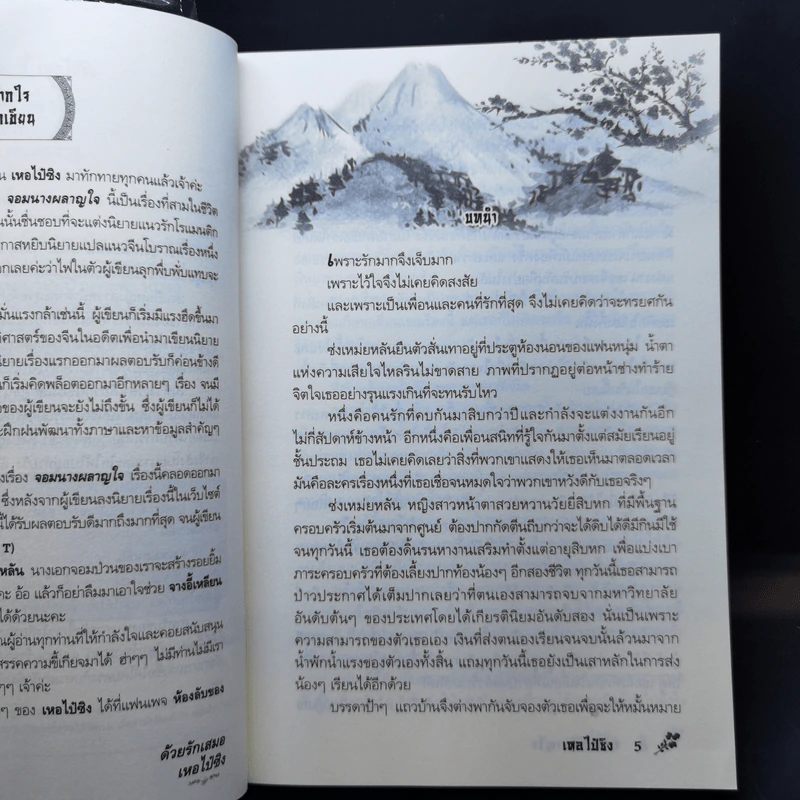 ากใจ
กเขียน
น เหอไป๋ซิง มาทักทายทุกคนแล้วเจ้าค่ะ
จอมนางผลาญใจ นี้เป็นเรื่องที่สามในชีวิต
นนั้นชื่นชอบที่จะแต่งนิยายแนวรักโรแมนติก
กาสหยิบนิยายแปลแนวจีนโบราณเรื่องหนึ่ง
อกเลยค่ะว่าไฟในตัวผู้เขียนลุกพึ่บพั่บแทบจะ
มั่นแรงกล้าเช่นนี้ ผู้เขียนก็เริ่มมีแรงฮึดขึ้นมา
ติศาสตร์ของจีนในอดีตเพื่อนำมาเขียนนิยาย
ยายเรื่องแรกออกมาผลตอบรับก็ค่อนข้างดี
นก็เริ่มคิดพล็อตออกมาอีกหลายๆ เรื่อง จนมี
ของผู้เขียนจะยังไม่ถึงขั้น ซึ่งผู้เขียนก็ไม่ได้
ะฝึกฝนพัฒนาทั้งภาษาและหาข้อมูลสำคัญๆ
งเรื่อง จอมนางผลาญใจ เรื่องนี้คลอดออกมา
ซึ่งหลังจากผู้เขียนลงนิยายเรื่องนี้ในเว็บไซต์
นี้ได้รับผลตอบรับดีมากถึงมากที่สุด จนผู้เขียน
T)
หลัน นางเอกจอมป่วนของเราจะสร้างรอยยิ้ม
คะ อ้อ แล้วก็อย่าลืมมาเอาใจช่วย จางอี้เหลียน
ได้ด้วยนะคะ
นผู้อ่านทุกท่านที่ให้กำลังใจและคอยสนับสนุน
สรรคความขี้เกียจมาได้ ฮ่าๆๆ ไม่มีท่านไม่มีเรา
ๆๆ เจ้าค่ะ
ๆ ของ เหอไป๋ซิง ได้ที่แฟนเพจ ห้องลับของ
ด้วยรักเสมอ
เหอไป๋ซิง
บทนำ
เพราะรักมากจึงเจ็บมาก
เพราะไว้ใจจึงไม่เคยคิดสงสัย
และเพราะเป็นเพื่อนและคนที่รักที่สุด จึงไม่เคยคิดว่าจะทรยศกัน
อย่างนี้
ซ่งเหม่ยหลันยืนตัวสั่นเทาอยู่ที่ประตูห้องนอนของแฟนหนุ่ม น้ำตา
แห่งความเสียใจไหลรินไม่ขาดสาย ภาพที่ปรากฏอยู่ต่อหน้าช่างทำร้าย
จิตใจเธออย่างรุนแรงเกินที่จะทนรับไหว
หนึ่งคือคนรักที่คบกันมาสิบกว่าปีและกำลังจะแต่งงานกันอีก
ไม่กี่สัปดาห์ข้างหน้า อีกหนึ่งคือเพื่อนสนิทที่รู้ใจกันมาตั้งแต่สมัยเรียนอยู่
ชั้นประถม เธอไม่เคยคิดเลยว่าสิ่งที่พวกเขาแสดงให้เธอเห็นมาตลอดเวลา
มันคือละครเรื่องหนึ่งที่เธอเชื่อจนหมดใจว่าพวกเขาหวังดีกับเธอจริงๆ
ซ่งเหม่ยหลัน หญิงสาวหน้าตาสวยหวานวัยยี่สิบหก ที่มีพื้นฐาน
ครอบครัวเริ่มต้นมาจากศูนย์ ต้องปากกัดตีนถีบกว่าจะได้ดิบได้ดีมีกินมีใช้
จนทุกวันนี้ เธอต้องดิ้นรนหางานเสริมทำตั้งแต่อายุสิบหก เพื่อแบ่งเบา
ภาระครอบครัวที่ต้องเลี้ยงปากท้องน้องๆ อีกสองชีวิต ทุกวันนี้เธอสามารถ
ป่าวประกาศได้เต็มปากเลยว่าที่ตนเองสามารถจบจากมหาวิทยาลัย
อันดับต้นๆ ของประเทศโดยได้เกียรตินิยมอันดับสอง นั่นเป็นเพราะ
ความสามารถของตัวเธอเอง เงินที่ส่งตนเองเรียนจนจบนั้นล้วนมาจาก
น้ำพักน้ำแรงของตัวเองทั้งสิ้น แถมทุกวันนี้เธอยังเป็นเสาหลักในการส่ง
น้องๆ เรียนได้อีกด้วย
บรรดาป้าๆ แถวบ้านจึงต่างพากันจับจองตัวเธอเพื่อจะให้หมั้นหมาย
เหอไป๋ซิง 5